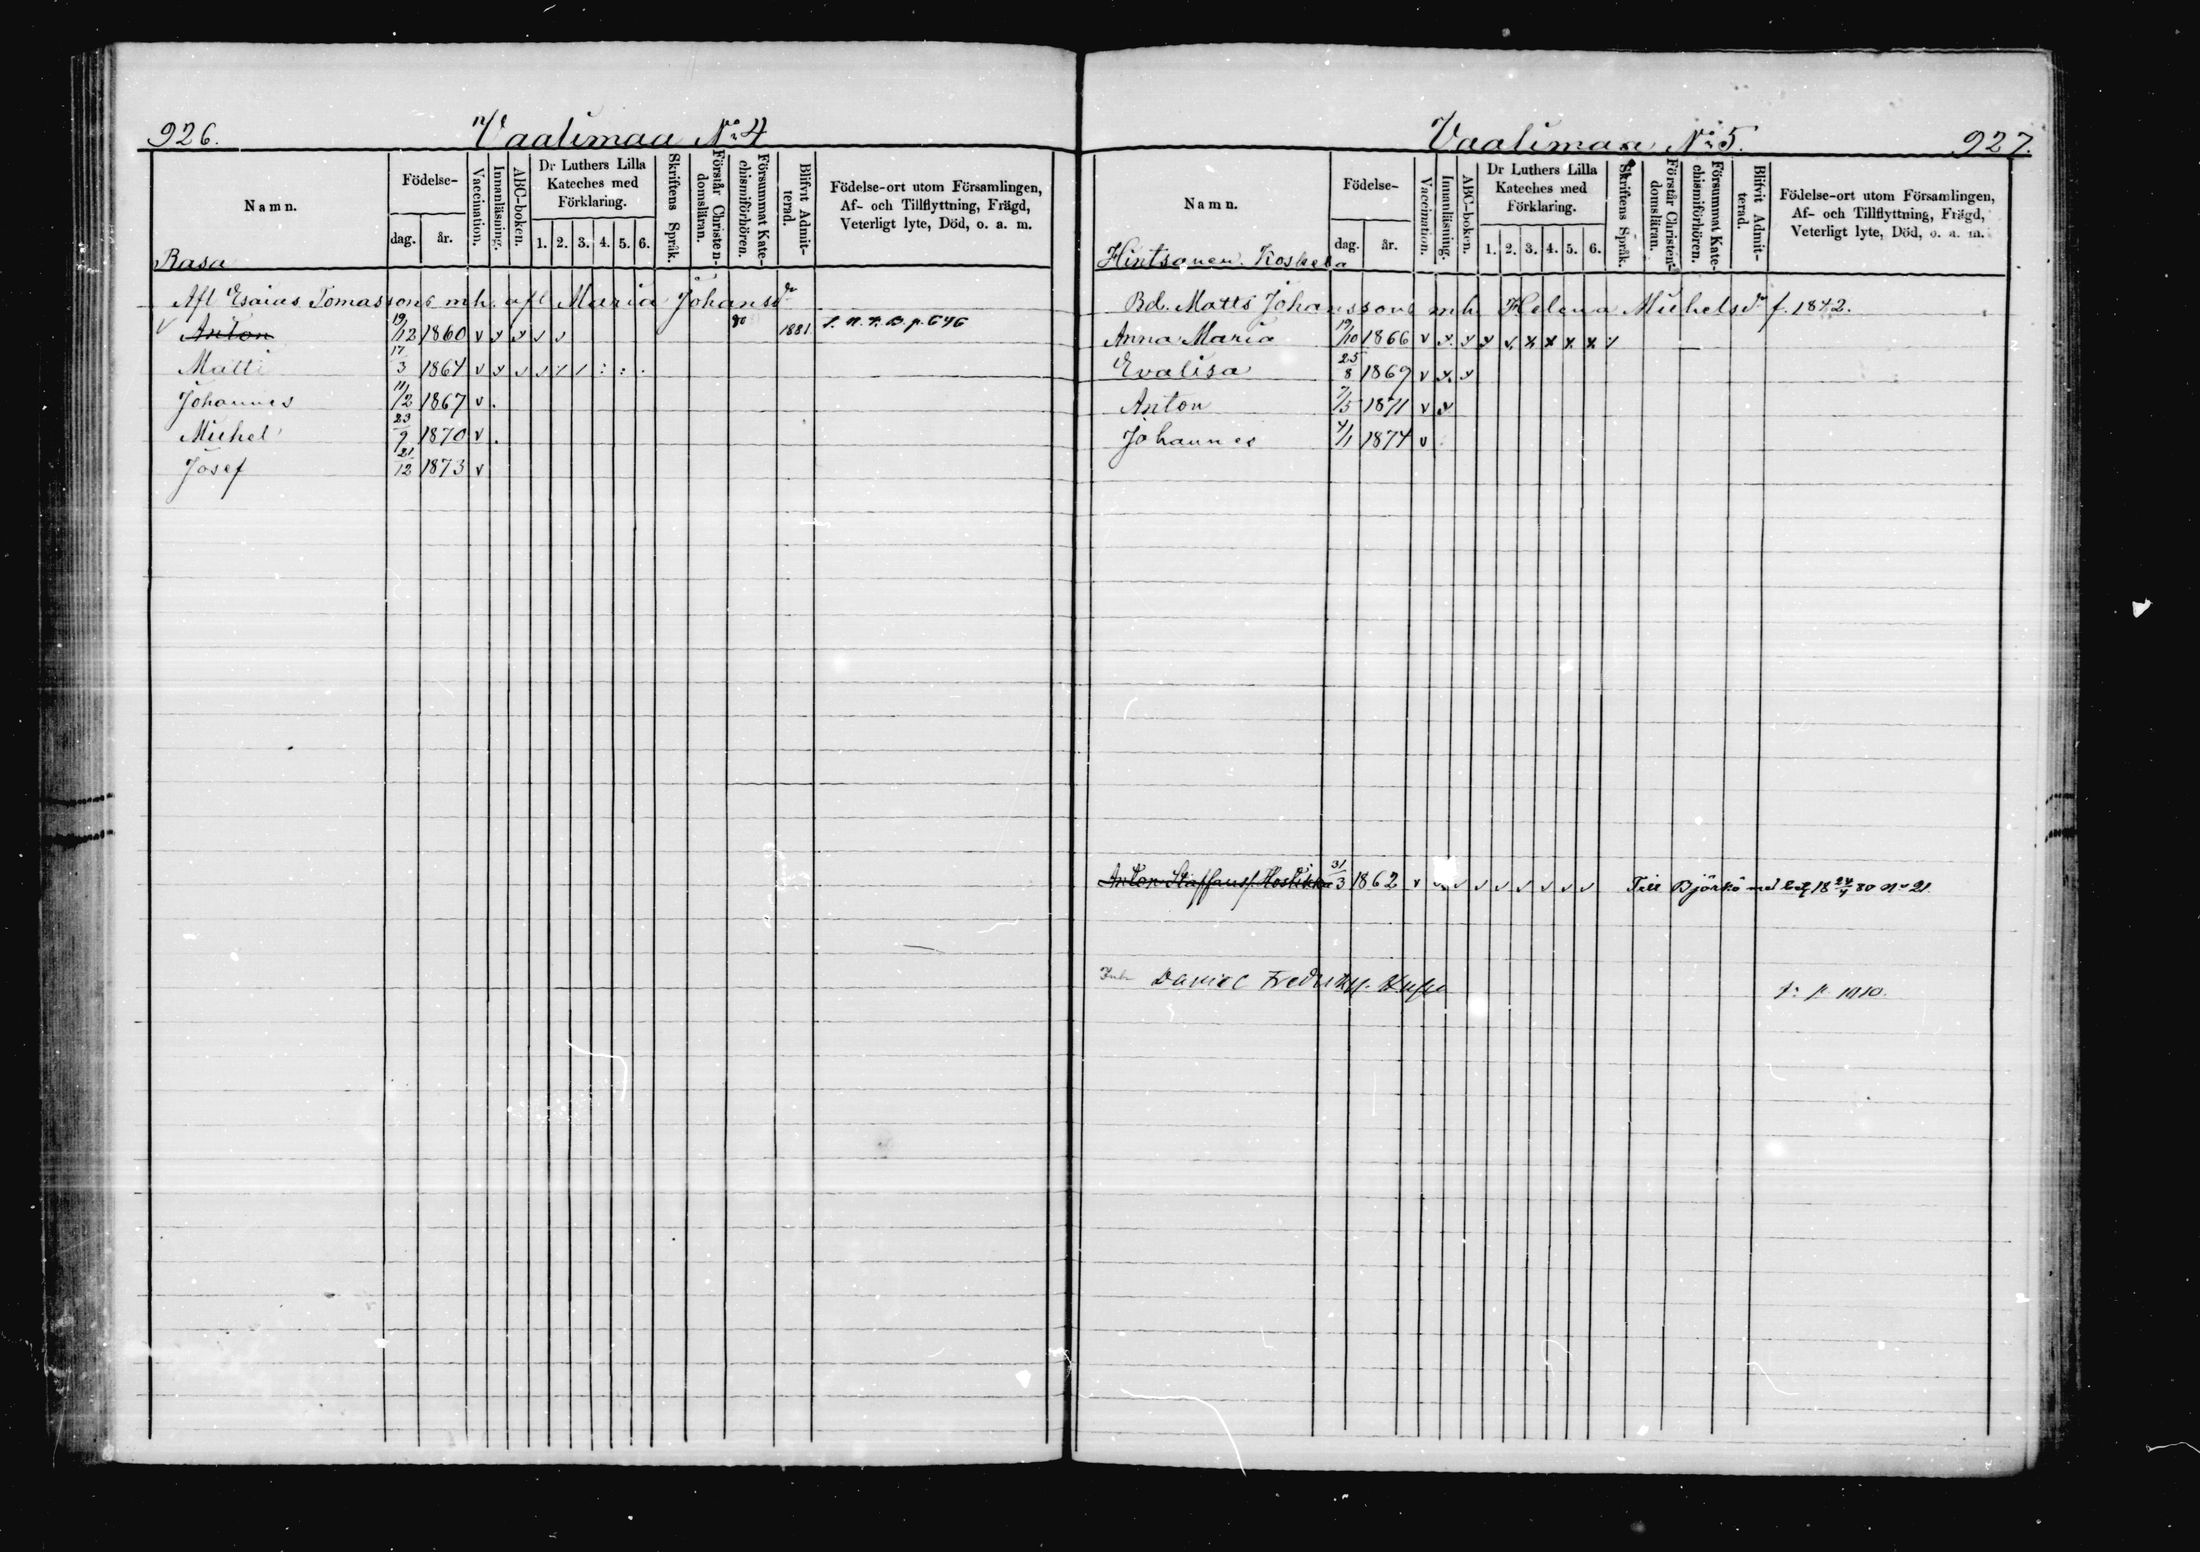 926. Vaalimaa No 4
Namn. Födelse- dag. år. Vaccination. Innanläsning. ABC-boken. Dr Luthers Lilla Kateches med Förklaring. 1. 2. 3. 4. 5. 6. Skriftens Språk. Förstår Christendomsläran. Försummat Katechismiförhören. Blifvit Admitterad. Födelse-ort utom Församlingen, Af- och Tillflyttning, Frägd, Veterligt lyte, Död, o. a. m.
Rasa
Afl Esaias Tomassons m h. afl Maria Johansdr
Anton 19/12 1860 v x x v v 80 1881 S. N. F. B. p. 646
Matti 17/3 1864 v x v v / / : : .
Johannes 11/2 1867 v .
Michel 23/9 1870 v .
Josef 21/12 1873 v
Vaalimaa No 5. 927.
Namn. Födelse- dag. år. Vaccination. Innanläsning. ABC-boken. Dr Luthers Lilla Kateches med Förklaring. 1. 2. 3. 4. 5. 6. Skriftens Språk. Förstår Christendomsläran. Försummat Katechismiförhören. Blifvit Admitterad. Födelse-ort utom Församlingen, Af- och Tillflyttning, Frägd, Veterligt lyte, Död, o. a. m.
Hintsanen. Koskela
Bd. Matts Johanssons m h. Helena Michelsdr f. 1842.
Anna Maria 19/10 1866 v x. x x x. x x x x /
Evalisa 25/8 1869 v x. x
Anton 7/5 1871 v x
Johannes 4/1 1874 v
Anton Staffansf Hostikka 31/3 1862 v v v v v v v v v Till Björkö med bet 18 24/4 80 No 21.
Daniel Fredriksf. p. 1010.